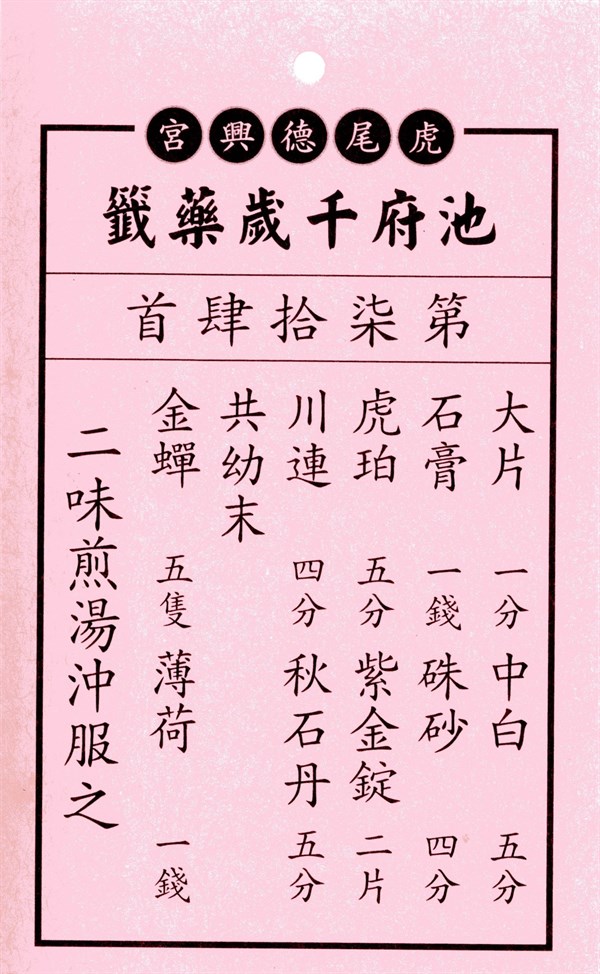 虎尾德興宮
池府千歲藥籤
第柒拾肆首
大片 一分 中白 五分
石膏 一錢 硃砂 四分
虎珀 五分 紫金錠 二片
川連 四分 秋石丹 五分
共幼末
金蟬 五隻 薄荷 一錢
二味煎湯沖服之